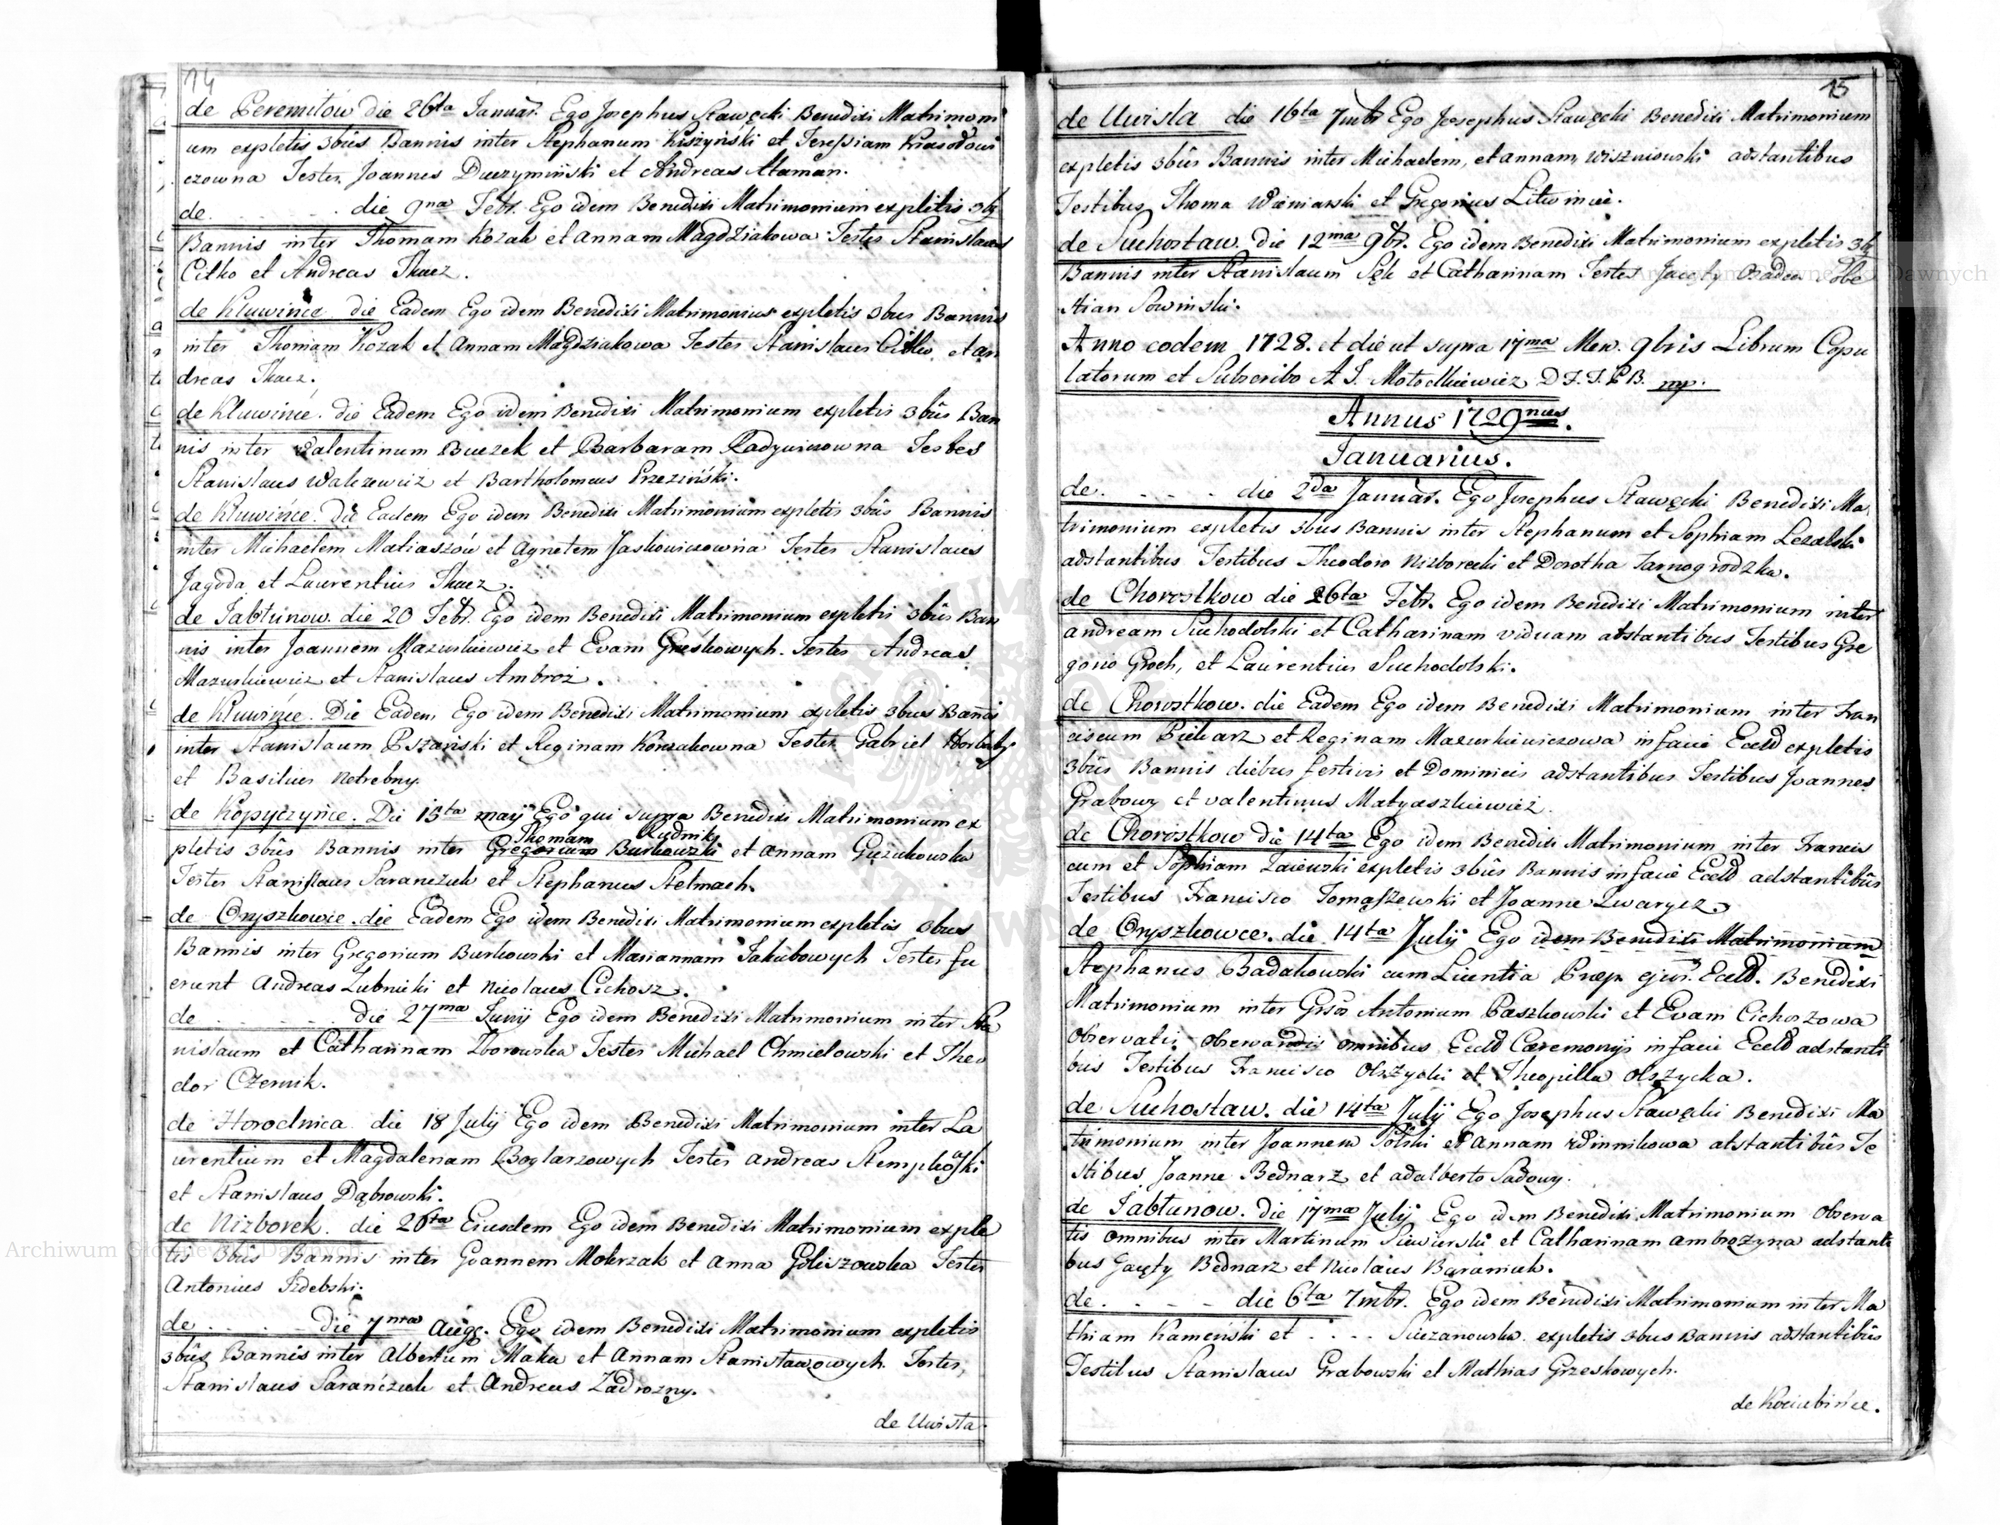 14
de Peremiłow die 26ta Januar. Ego Josephus Stawęcki Benedixi Matrimoni
um expletis 3bûs Bannis inter Stephanum Kiszyński et
czowna Testes Joannes Duczymiński et Andreas Ataman.
de . . . . . . . die 9na Febr. Ego idem Benedixi Matrimonium expletis 3b
Bannis inter Thomam Kozak et Annam Magdziakowa Testes Stanislaus
Citko et Andreas Tkacz.
de Kluwińce die Eadem Ego idem Benedixi Matrimonius expletis 3bus Bannis
inter Thomam Kozak et Annam Magdziakowa Testes Stanislaus Citko, et An
dreas Tkacz.
de Kluwińce. die Eadem Ego idem Benedixi Matrimonium expletis 3bûs Ban
nis inter Valentinum Buczek et Barbaram Testes
Stanislaus Walczewicz et Bartholomeus Brzeziński.
de Kluwińce. die Eadem Ego idem Benedixi Matrimonium expletis 3bûs Bannis
inter Michaelem Matiaszów et Agnetem Jaskowiczowna Testes Stanislaus
Jagoda et Laurentius Tkacz.
de Jabłunow. die 20 Febr. Ego idem Benedixi Matrimonium expletis 3bûs Ban
nis inter Joannem Mazurkiewicz et Evam Greskowych. Testes Andreas
Mazurkiewicz et Stanislaus Ambroż.
de Kluwińce. Die Eadem Ego idem Benedixi Matrimonium expletis 3bus Bannis
inter Stanislaum Pszański et Reginam Korzakowna Testes Gabriel
et Basilius Netrebny.
de Kopyczyńce. Die 15ta maij Ego qui supra Benedixi Matrimonium ex
Thomam Rudnik
pletis 3bûs Bannis inter Gregorium Burkowski et Annam
Testes Stanislaus Saranczuk et Stephanus Stelmach.
de Oryszkowce. die Eadem Ego idem Benedixi Matrimonium expletis 3bus
Bannis inter Gregorium Burkowski et Mariannam Jakubowych Testes fu
erunt Andreas Lubnicki et Nicolaus Cichosz.
de . . . . . . die 27ma Junij Ego idem Benedixi Matrimonium inter Sta
nislaum et Catharinam Zborowska Testes Michael Chmielowski et Theo
dor Czernik.
de Horodnica die 18 Julij Ego idem Benedixi Matrimonium inter La
urentium et Magdalenam Boglarzowych Testes Andreas Stempkowski
et Stanislaus Dąbrowski.
de Nizborek. die 26ta Eiusdem Ego idem Benedixi Matrimonium exple
tis 3bus Bannis inter Joannem Mokrzak et Anna Goliszowska Testes
Antonius Izdebski.
de . . . . . die 7ma Aug. Ego idem Benedixi Matrimonium expletis
3bûs Bannis inter Albertum Maka et Annam Stanisławowych. Testes,
Stanislaus Sarańczuk et Andreas Zadrozny.
de Uwisła.
15
de Uwisła die 16ta 7mbr Ego Josephus Stawęcki Benedixi Matrimonium
expletis 3bûs Bannis inter Michaelem, et Annam Wiszniowski adstantibus
Testibus, Thoma Winiarski et Gregorius
de Suchostaw. die 12ma 9br. Ego idem Benedixi Matrimonium expletis 3b
Bannis inter Stanislaum Sęk et Catharinam Testes Sobe
stian Sowinski.
Anno eodem 1728. et die ut supra 17ma Men. 9bris Librum Copu
latorum et Subscribo A J. D F. F. P B. mp.
Annus 1729nus.
Januarius.
de. . . . . die 2da Januar. Ego Josephus Stawęcki Benedixi Ma
trimonium expletis 3bus Bannis inter Stephanum et Sophiam
adstantibus Testibus Theodoro Nizborecki et Dorotha Tarnogrodzka.
de Chorostkow die 26ta Febr. Ego idem Benedixi Matrimonium inter
Andream Suchodolski et Catharinam viduam abstantibus Testibus Gre
gorio Groch, et Laurentius Suchodolski.
de Chorostkow. die Eadem Ego idem Benedixi Matrimonium inter Fran
ciscum Piekarz et Reginam Mazurkiewiczowa in facie Eccld expletis
3bûs Bannis diebus festivis et Dominicis adstantibus Testibus Joannes
Grabowy et Valentinus Matyaszkiewicz.
de Chorostkow die 14ta Ego idem Benedixi Matrimonium inter Francis
cum et Sophiam expletis 3bûs Bannis in facie Eccld adstantibûs
Testibus Francisco Tomaszewski et Joanne Twarycz.
de Oryszkowce. die 14ta Julij Ego idem Benedixi Matrimonium
Stephanus Badakowski cum Licentia Prop. ejus. Eccld. Benedixi
Matrimonium inter Antonium Paszkowski et Evam Cichoszowa
Observatis observandis omnibus Eccld Cæremonijs in facie Eccld adstanti
bus Testibus Francisco Olszycki et Theopilla Olszycka.
de Suchostaw. die 14ta Julij Ego Josephus Stawęcki Benedixi Ma
trimonium inter Joannem Polski et Annam Winnikowa abstantibûs Te
stibus, Joanne Bednarz et Adalberto Sadowy.
de Jabłunow. die 17ma Julij Ego idem Benedixi Matrimonium Observa
tis omnibus inter Martinum Siewierski et Catharinam Ambrozyna adstanti
bus Bednarz et Nicolaus Baraniuk.
de. . . . . die 6ta 7mbr. Ego idem Benedixi Matrimonium inter Ma
thiam Kamenski et . . . . Suczanowska expletis 3bus Bannis adstantibûs
Testibus Stanislaus Grabowski et Mathias Grzeskowych.
de Kociubińce.